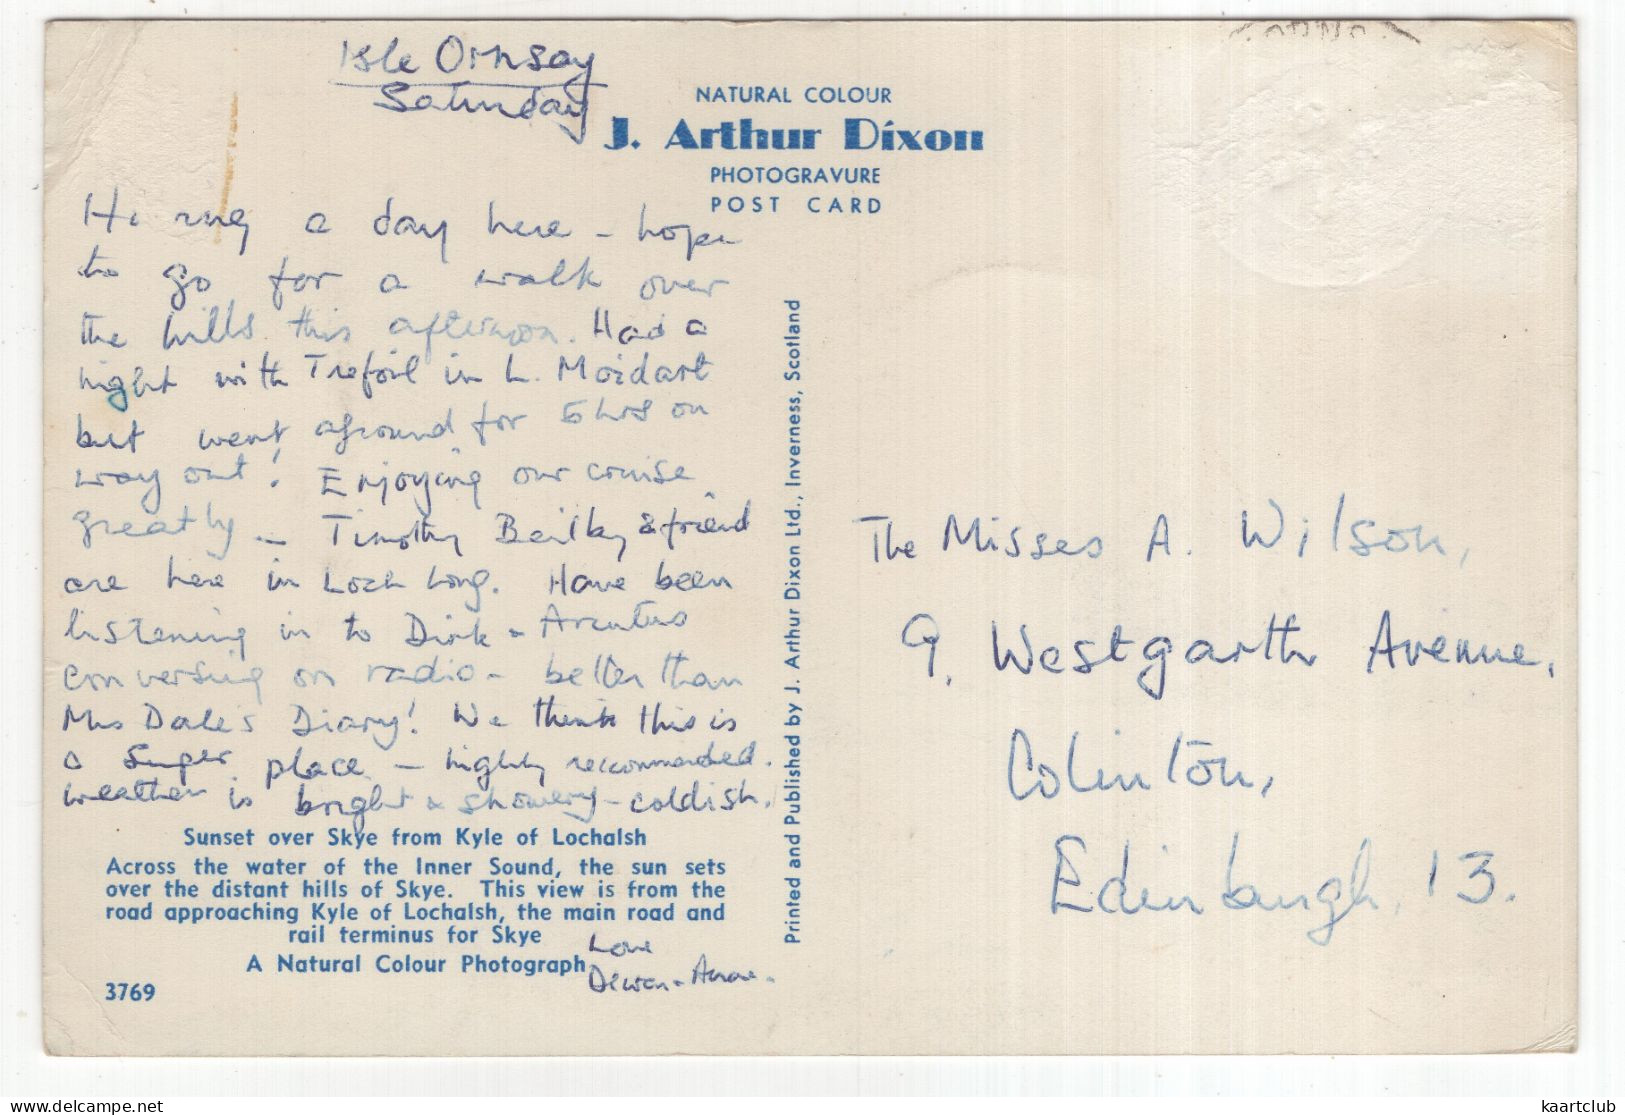 Isle Ornsay
Saturday
NATURAL COLOUR
J. Arthur Dixon
PHOTOGRAVURE
POST CARD
a day here - hope
to go for a walk over
the hills this afternoon. Had a
night with Trefoil in L. Moidart
but went aground for 5 hrs on
way out! Enjoying our cruise
greatly - Timothy Beilby & friend
are here in Loch Long. Have been
listening in to Dirk & Arcutus
conversing on radio - better than
Mrs Dale's Diary! We think this is
a super place - highly reccommended.
weather is bright & showery - coldish.
Sunset over Skye from Kyle of Lochalsh
Across the water of the Inner Sound, the sun sets
over the distant hills of Skye. This view is from the
road approaching Kyle of Lochalsh, the main road and
rail terminus for Skye
A Natural Colour Photograph
3769
Love
Printed and Published by J. Arthur Dixon Ltd., Inverness, Scotland
The Misses A. Wilson,
9, Westgarth Avenue,
Colinton,
Edinburgh, 13.
kaartclub